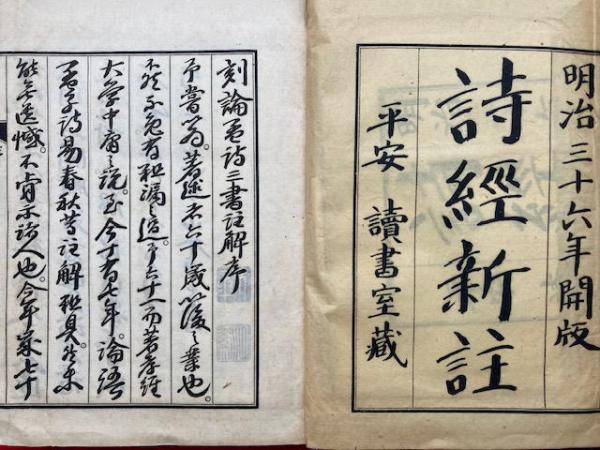 明治三十六年開版
詩經新註
平安 讀書室藏
刻論孟詩三書註解序
予嘗以為。著述者六十歲以後之業也。
不然不免有粗漏之過。予六十一而著孝經
大学中庸之説。至今十有七年。論語
孟子詩易春秋等註解粗具。尚未
能無遺憾。不肯示諸人也。今年七十